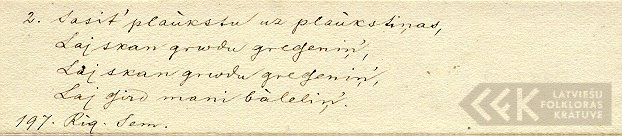 2. Sasit' plaûkstu uz plaûkstiņas,
Laj skan grwdu gredzeniņ',
Laj skan grwdu gredzeniņ',
Laj dzird mani bāleliņ'.
197. Rīg. Sem.
LATVIEŠU
FOLKLORAS
KRĀTUVE